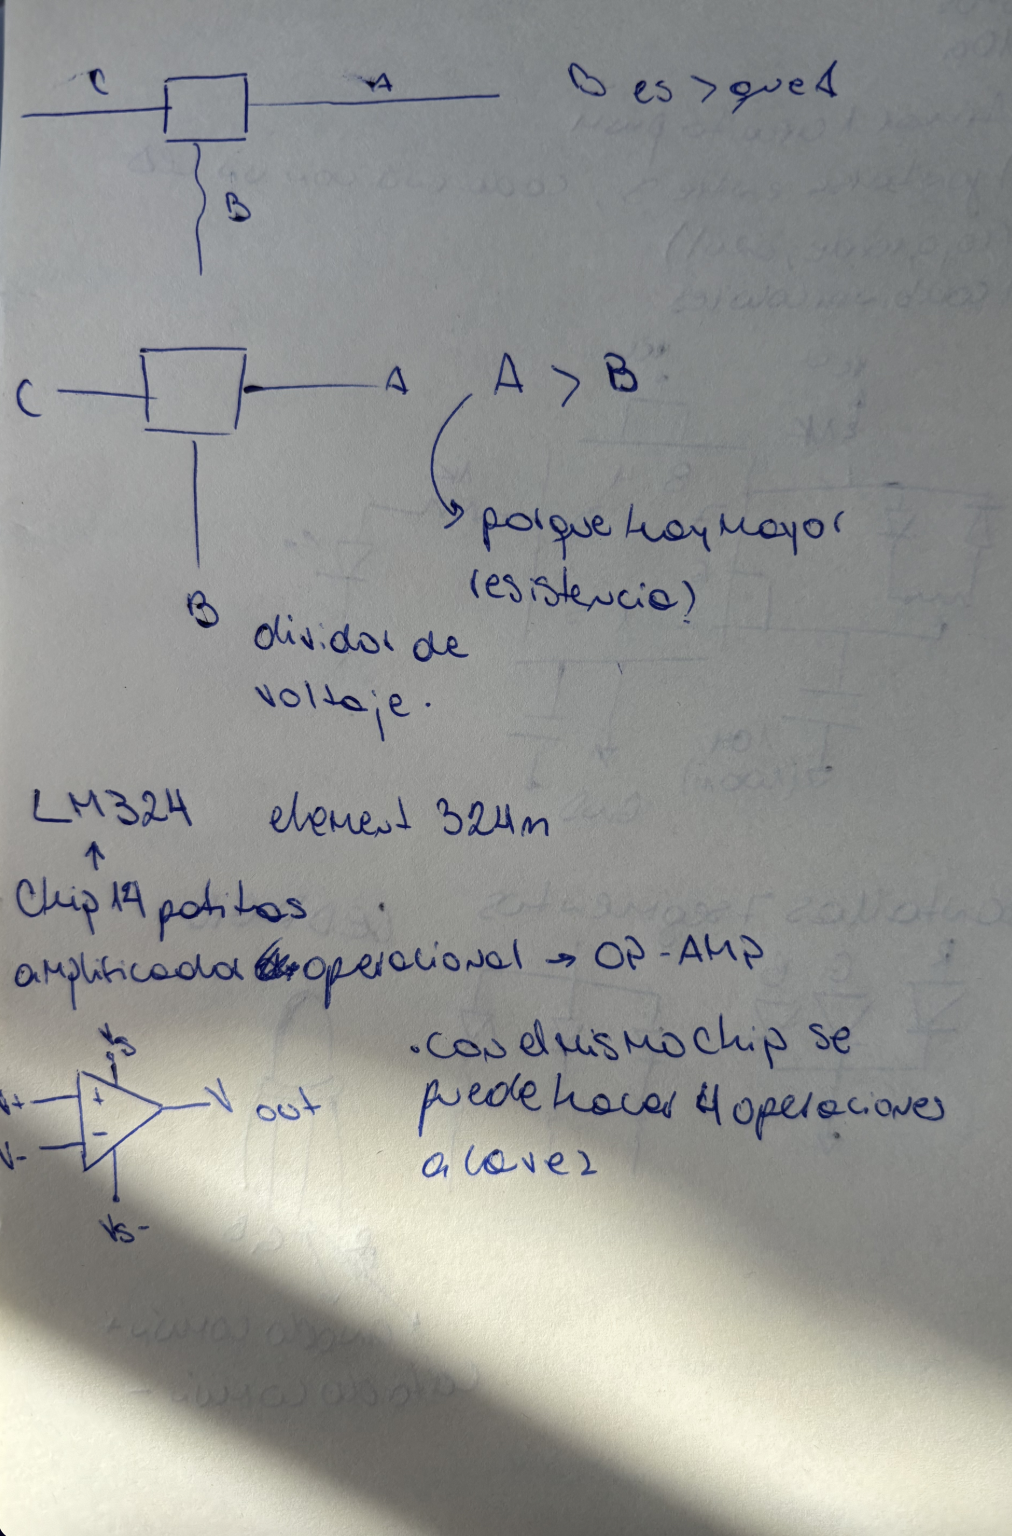 C
A
B es > que A
B
C
A
A > B
porque hay mayor
resistencia?
B
divisor de
voltaje.
LM324 element 324n
Chip 14 patitas
amplificador operacional → OP-AMP
Vs
V+
+
V out
V-
-
Vs-
. con el mismo chip se
puede hacer 4 operaciones
a la vez